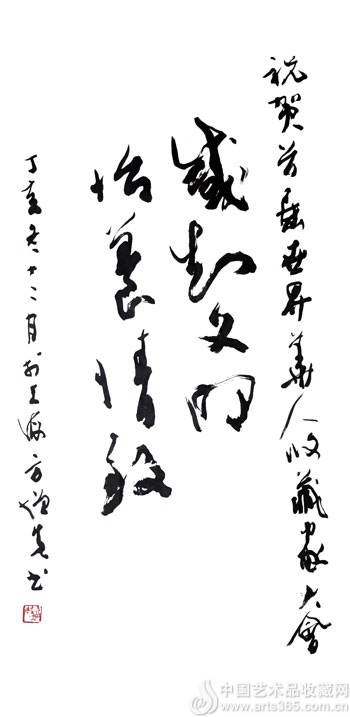 祝贺首届世界華人收藏家大會
感知文明
怡養情致
丁亥冬十二月於上海方增先书
中国艺术品收藏网
www.arts365.com.cn